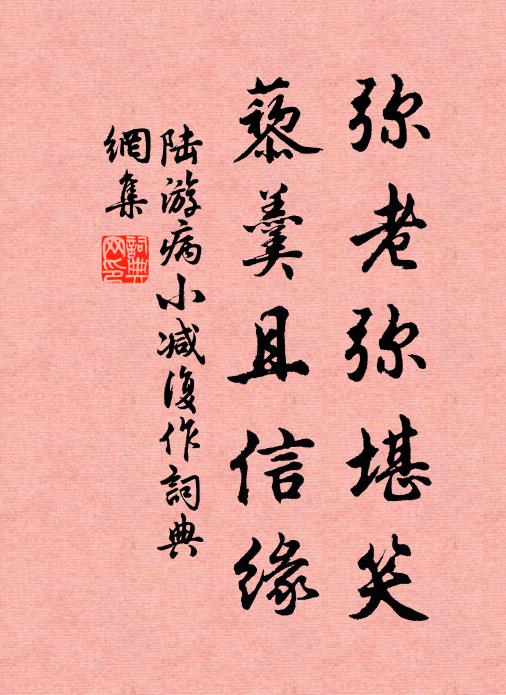 弥老弥堪笑
藜羹且信缘
陆游病小减复作詞典
網集
詞典
网印